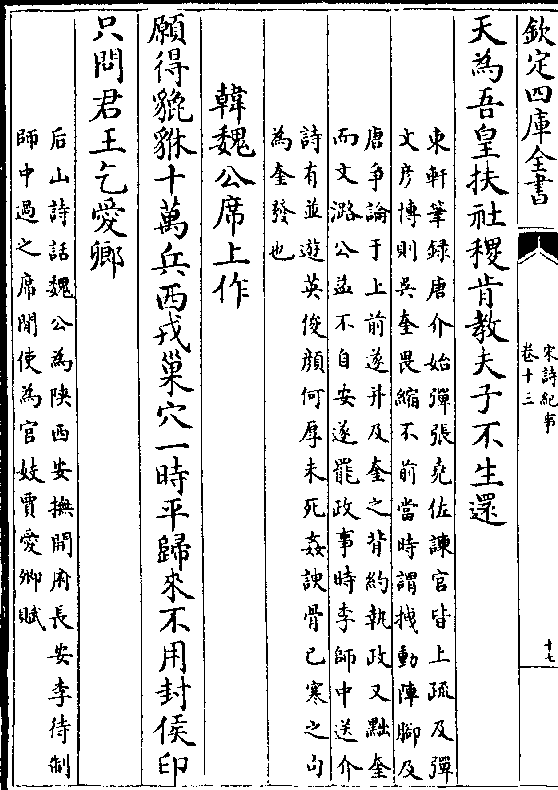 欽定四庫全書
宋詩紀事
卷十三
十七
天為吾皇扶社稷肯教夫子不生還
東軒筆録唐介始彈張堯佐諫官皆上疏及彈
文彦博則吳奎畏縮不前當時謂拽動陣腳及
唐爭論于上前遂并及奎之背約執政又黜奎
而文潞公益不自安遂罷政事時李師中送介
詩有並遊英俊顔何厚未死姦諛骨已寒之句
為奎發也
韓魏公席上作
願得貔貅十萬兵西戎巢穴一時平歸來不用封侯印
只問君王乞愛卿
后山詩話魏公為陝西安撫開府長安李待制
師中過之席間使為官妓賈愛卿賦